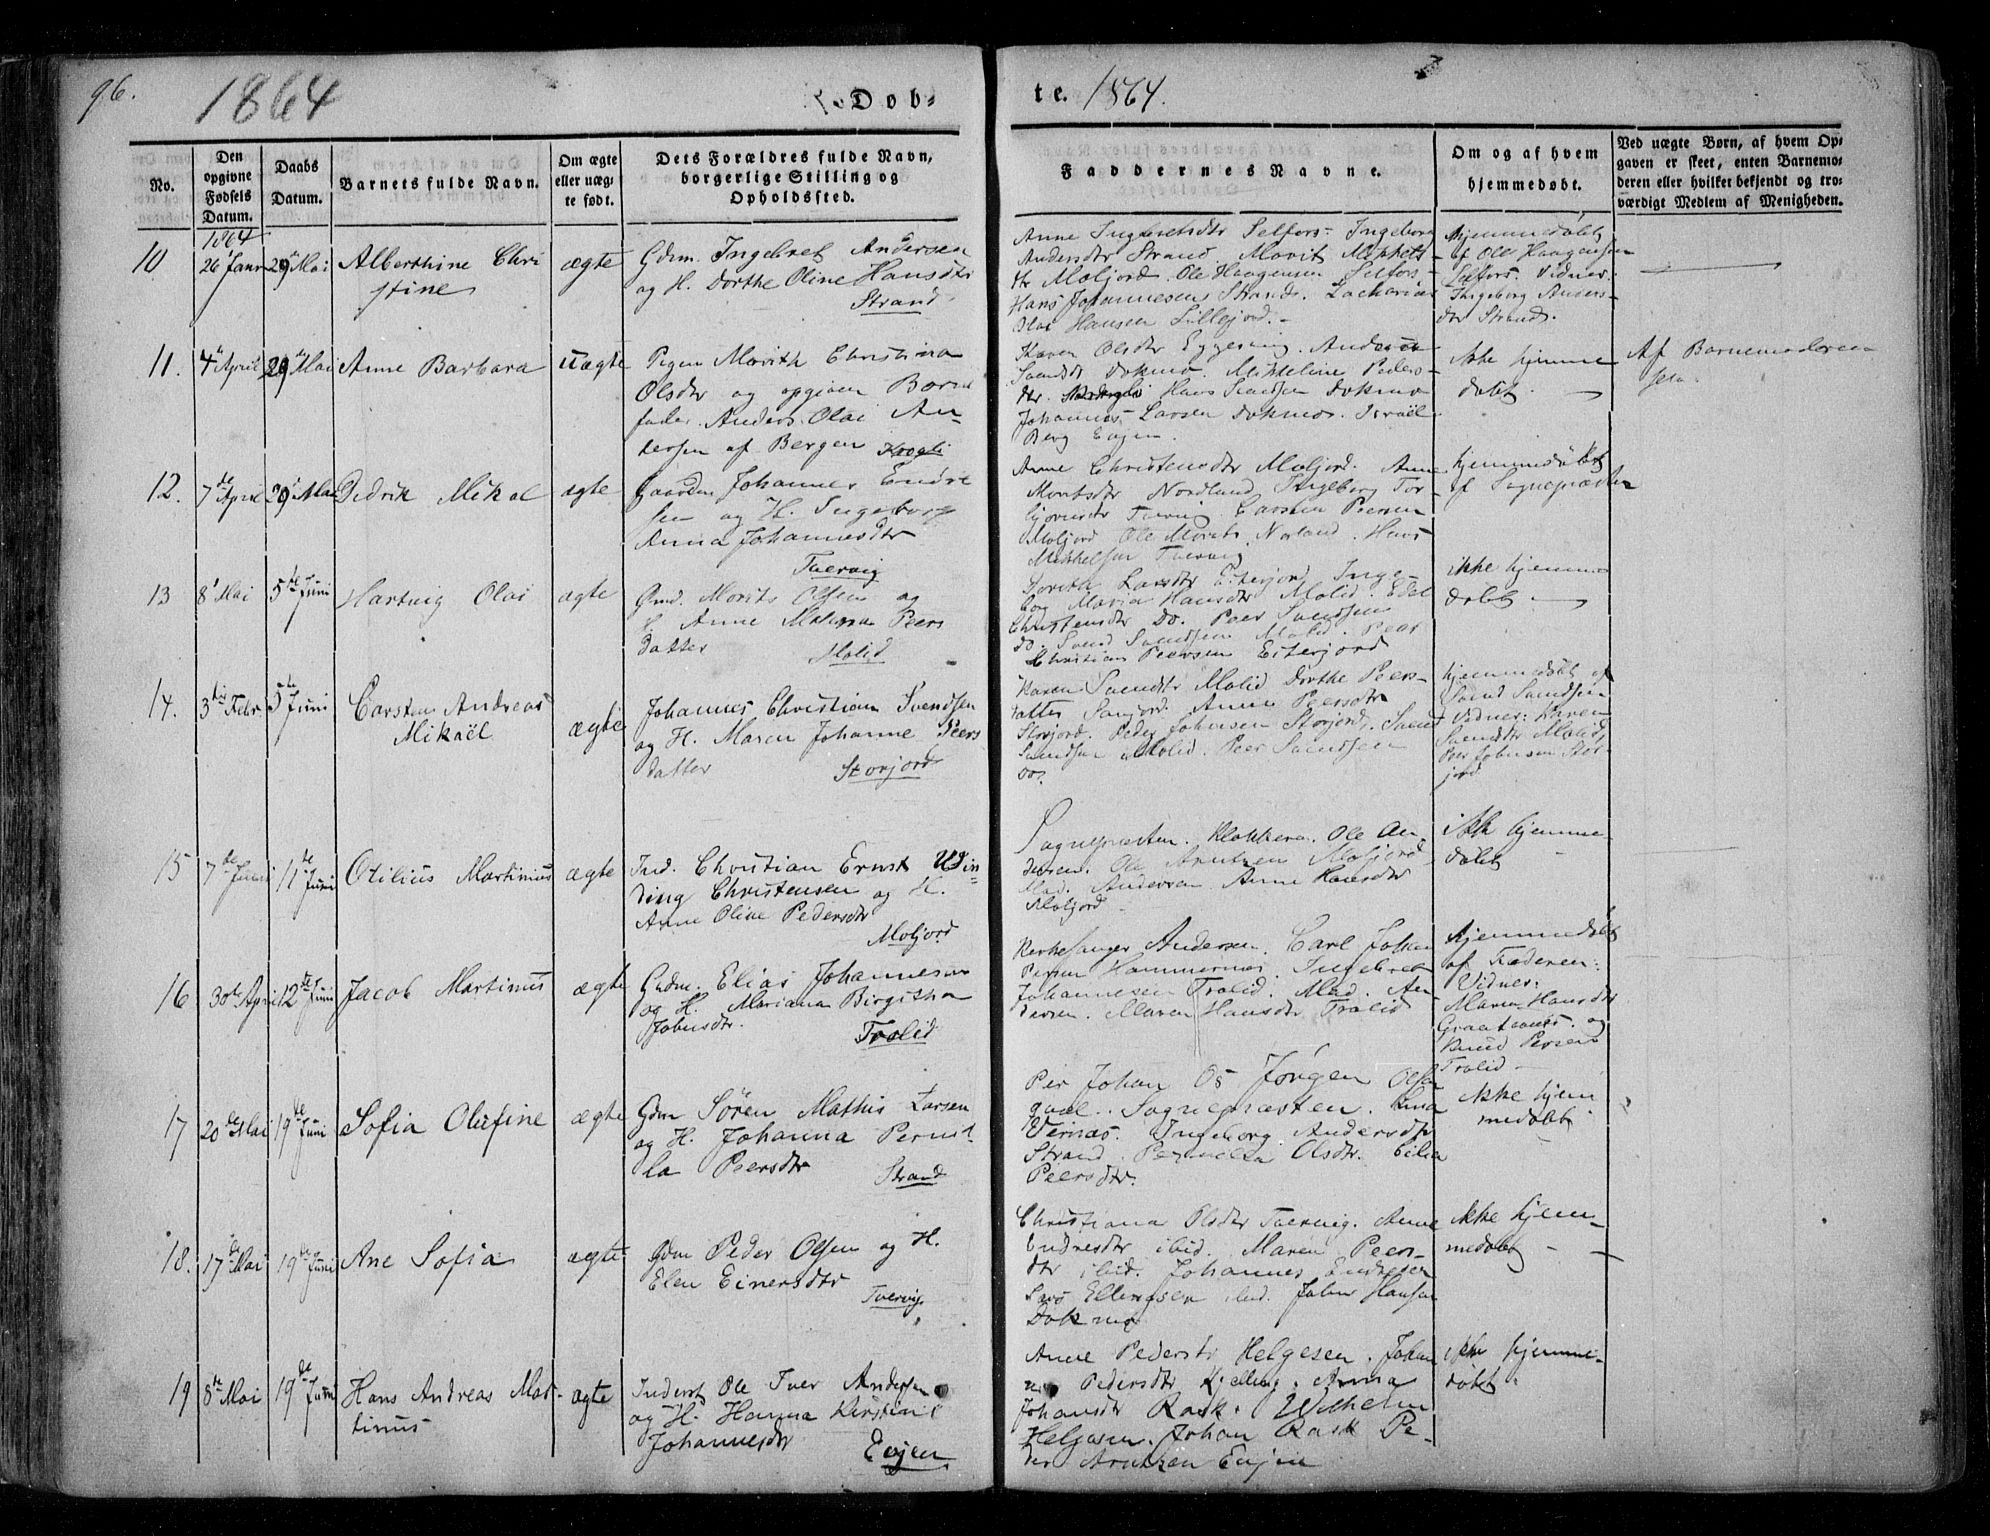 96.
1864
Døb-
te. 1864.
No.
Den opgivne Fødsels Datum.
Daabs Datum.
Barnets fulde Navn.
Om ægte eller uægte født.
Dets Forældres fulde Navn, borgerlige Stilling og Opholdssted.
Faddernes Navne.
Om og af hvem hjemmedøbt.
Ved uægte Børn, af hvem Opgaven er skeet, enten Barnemoderen eller hvilket bekjendt og troværdigt Medlem af Menigheden.
1864
10
26 Janr
29 Mai
Albertine Chri
stine
ægte
Gdm. Ingebret Andersen
og H. Dorthe Oline Hansdtr
Strand
Anne Ingebretsdtr Selfors - Ingeborg
Andersdtr Strand Marit Mikkels-
dtr Moljord. Ole Haagensen Selfors-
Hans Johannesen Strand. Zacharias
Olai Hansen Lillejord. -
hjemmedøbt
af Ole Haagensen
Selfors. Vidner.
Ingeborg Anders-
dtr Strand.
11.
4 April
29 Mai
Anne Barbara
uægte
Pigen Marith Christina
Olsdtr og opgiven Barne
fader Anders Olai An
dersen af Bergen
Karen Olsdtr
Svendsdtr Dokmo. Mikkeline Peders-
dtr. Hans Svendsen Dokmo
Johannes Larsen Dokmo. Israël
Berg Evjen.
ikke hjemme
døbt. -
Af Barnemoderen
selv
12.
7de April
29 Mai
Didrik Mikal
ægte
Gaardm. Johannes Endre
sen og H. Ingeborg
Anna Johannesdtr
Tvervig
Anne Christensdtr Moljord. Anne
Moritsdtr Nordland. Ingeborg Tor-
Tvervig. Carsten Peersen
Moljord. Ole Morits. Norland. Hans
Mikkelsen Tvervig
hjemmedøbt
af Sognepræsten
13
8 Mai
5te Juni
Hartvig Olai
ægte
Gmd. Morits Olsen og
H. Anne Peers
datter
Molid
Larsdtr Eiterjord. Inge-
borg Maria Hansdtr Molid. Edel
Christensdtr Do. Peer Svendsen
do Svend Svendsen Molid. Peer
Christian Peersen Eiterjord
ikke hjemme
døbt -
14.
3die Febr.
5te Juni
Carsten Andreas
Mikaël
ægte
Johannes Christian Svendsen
og H. Maren Johanne Peers
datter
Storjord
Karen Svendsdtr Molid Dorthe Peers-
datter Anne Peersdtr
Storjord. Peder Johnsen Storjord. Svend
Svendsen Molid. Peer Svendsen
do.
hjemmedøbt af
Svend Svendsen
Vidner: Karen
Svendsdtr Molid,
Peer Johnsen Stor-
jord
15
7de Juni
11te Juni
Otilius Martinus
ægte
Ind. Christian Ernst Udin-
ding Christensen og H.
Anne Oline Pedersdtr
Moljord
Sognepræsten. Klokkeren. Ole An-
dersen. Ole Arntzen Moljord
Mad. Andersen Anne Hansdtr
Moljord
ikke hjemme-
døbt
16
30te April
12te Juni
Jacob Martinus
ægte
Gdm. Elias Johannesen
og H. Mariana Birgitha
Johnsdtr.
Tralid
Kirkesanger Andersen. Carl Johan
Persen Hammernes. Ingebret
Johannesen Tralid. Mad. An
dersen. Maren Hansdtr Tralid
hjemmedøbt
af Faderen:
Vidner:
Maren Hansdtr
og
Knud Persen
Tralid -
17
20de Mai
19de Juni
Sofia Olufine
ægte
Gdm Søren Mathis Larsen
og H. Johanna Pernil-
la Peersdtr
Strand
Per Johan Os Jørgen Olsen
Sognepræsten.
Vernæs. Ingeborg Andersdtr
Strand. Pernella Olsdtr.
Peersdtr.
ikke hjem
medøbt
18.
17de Mai
19de Juni
Ane Sofia
ægte
Gdm Peder Olsen og H.
Elen Einersdtr
Tvervig
Christiana Olsdtr Tvervig. Anne
Endresdtr ibid. Maren Peers-
dtr ibid. Johannes Endresen
Ellingsen ibid. John Hansen
Dokmo
ikke hjem-
medøbt -
19
8de Mai
19de Juni
Hans Andreas Mar-
tinus
ægte
Inderst Ole Tver Andersen
og H. Hanna Kirstine
Johannesdtr
Evjen
Anne Pedersdtr Helgesen. Johan
ne Pedersdtr Kjelling. Anna
Johansdtr Rask. Wilhelm
Helgesen. Johan Rask Pe-
der Arntzen Evjen
ikke hjemme-
døbt.